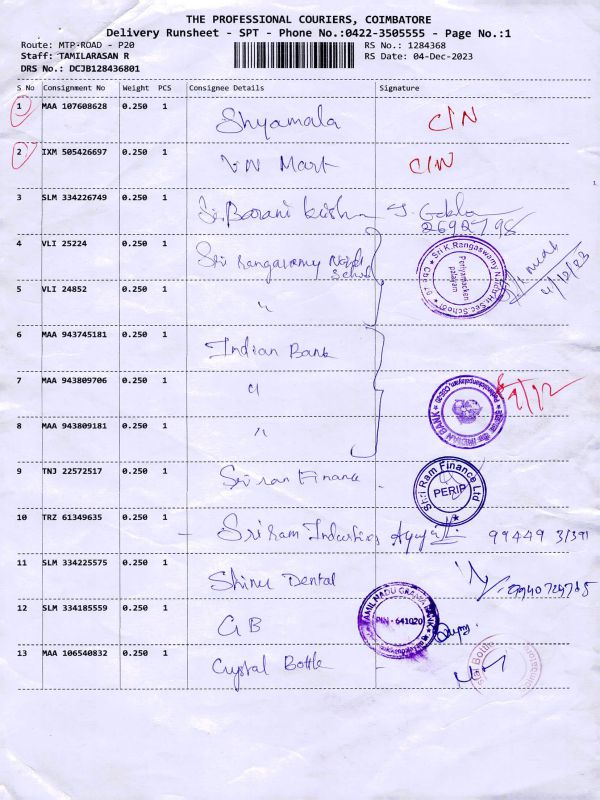 THE PROFESSIONAL COURIERS, COIMBATORE
Delivery Runsheet - SPT - Phone No.:0422-3505555 - Page No.:1
Route: MTP-ROAD - P20 RS No.: 1284368
Staff: TAMILARASAN R RS Date: 04-Dec-2023
DRS No.: DCJB128436801
S No Consignment No Weight PCS Consignee Details Signature
1 MAA 107608628 0.250 1 Shyamala C/N
2 IXM 505426697 0.250 1 VN Mart C/N
3 SLM 334226749 0.250 1 Sri.Barani
4 VLI 25224 0.250 1 Sri Rangasamy
Sri K.Rangaswamy
5 VLI 24852 0.250 1 "
4/12/23
6 MAA 943745181 0.250 1 Indian Bank
7 MAA 943809706 0.250 1 "
INDIAN BANK
8 MAA 943809181 0.250 1 "
9 TNJ 22572517 0.250 1 Sriram Finance
Shri Ram Finance Ltd
PERIP
10 TRZ 61349635 0.250 1 Sriram Industries 99449 31391
11 SLM 334225575 0.250 1 Shinu Dental
12 SLM 334185559 0.250 1 G B
TAMIL NADU GRAMA BANK
PIN - 641020
13 MAA 106540832 0.250 1 Crystal Bottle